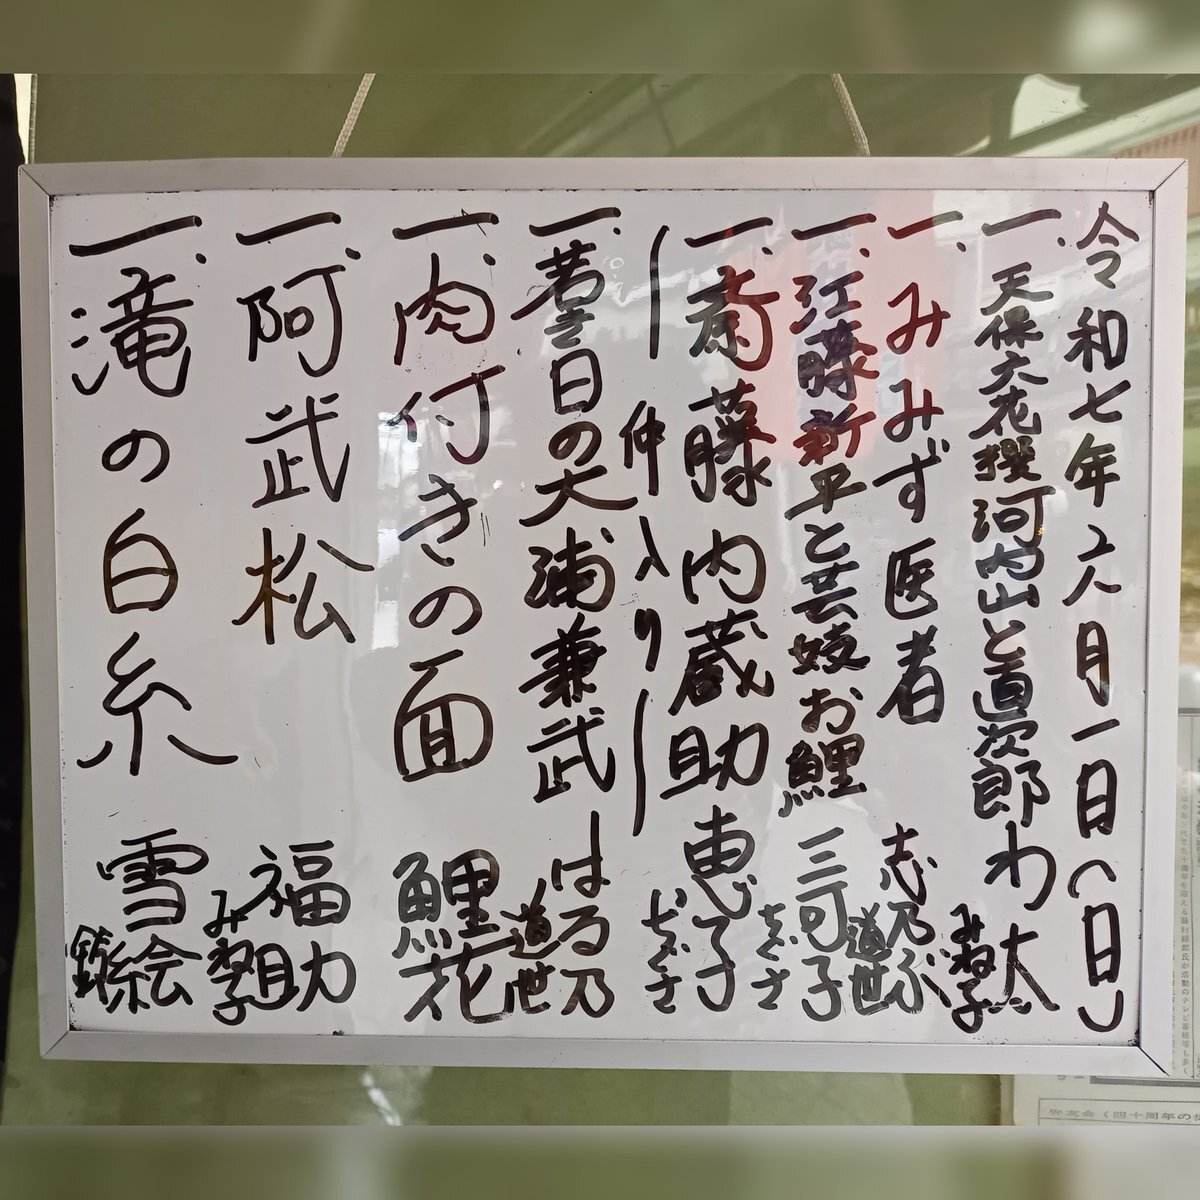 令和七年二月一日(日)
一、天保六花撰 河内山と直次郎 わ太
みね子
一、みみず医者 志乃ぶ
道世
一、江藤新平と芸妓お鯉 三可子
一、斎藤内蔵助 恵子
仲入り
一、若き日の大浦兼武 はる乃
道世
一、肉付きの面 鯉花
一、阿武松 福助
みね子
一、滝の白糸 雪絵